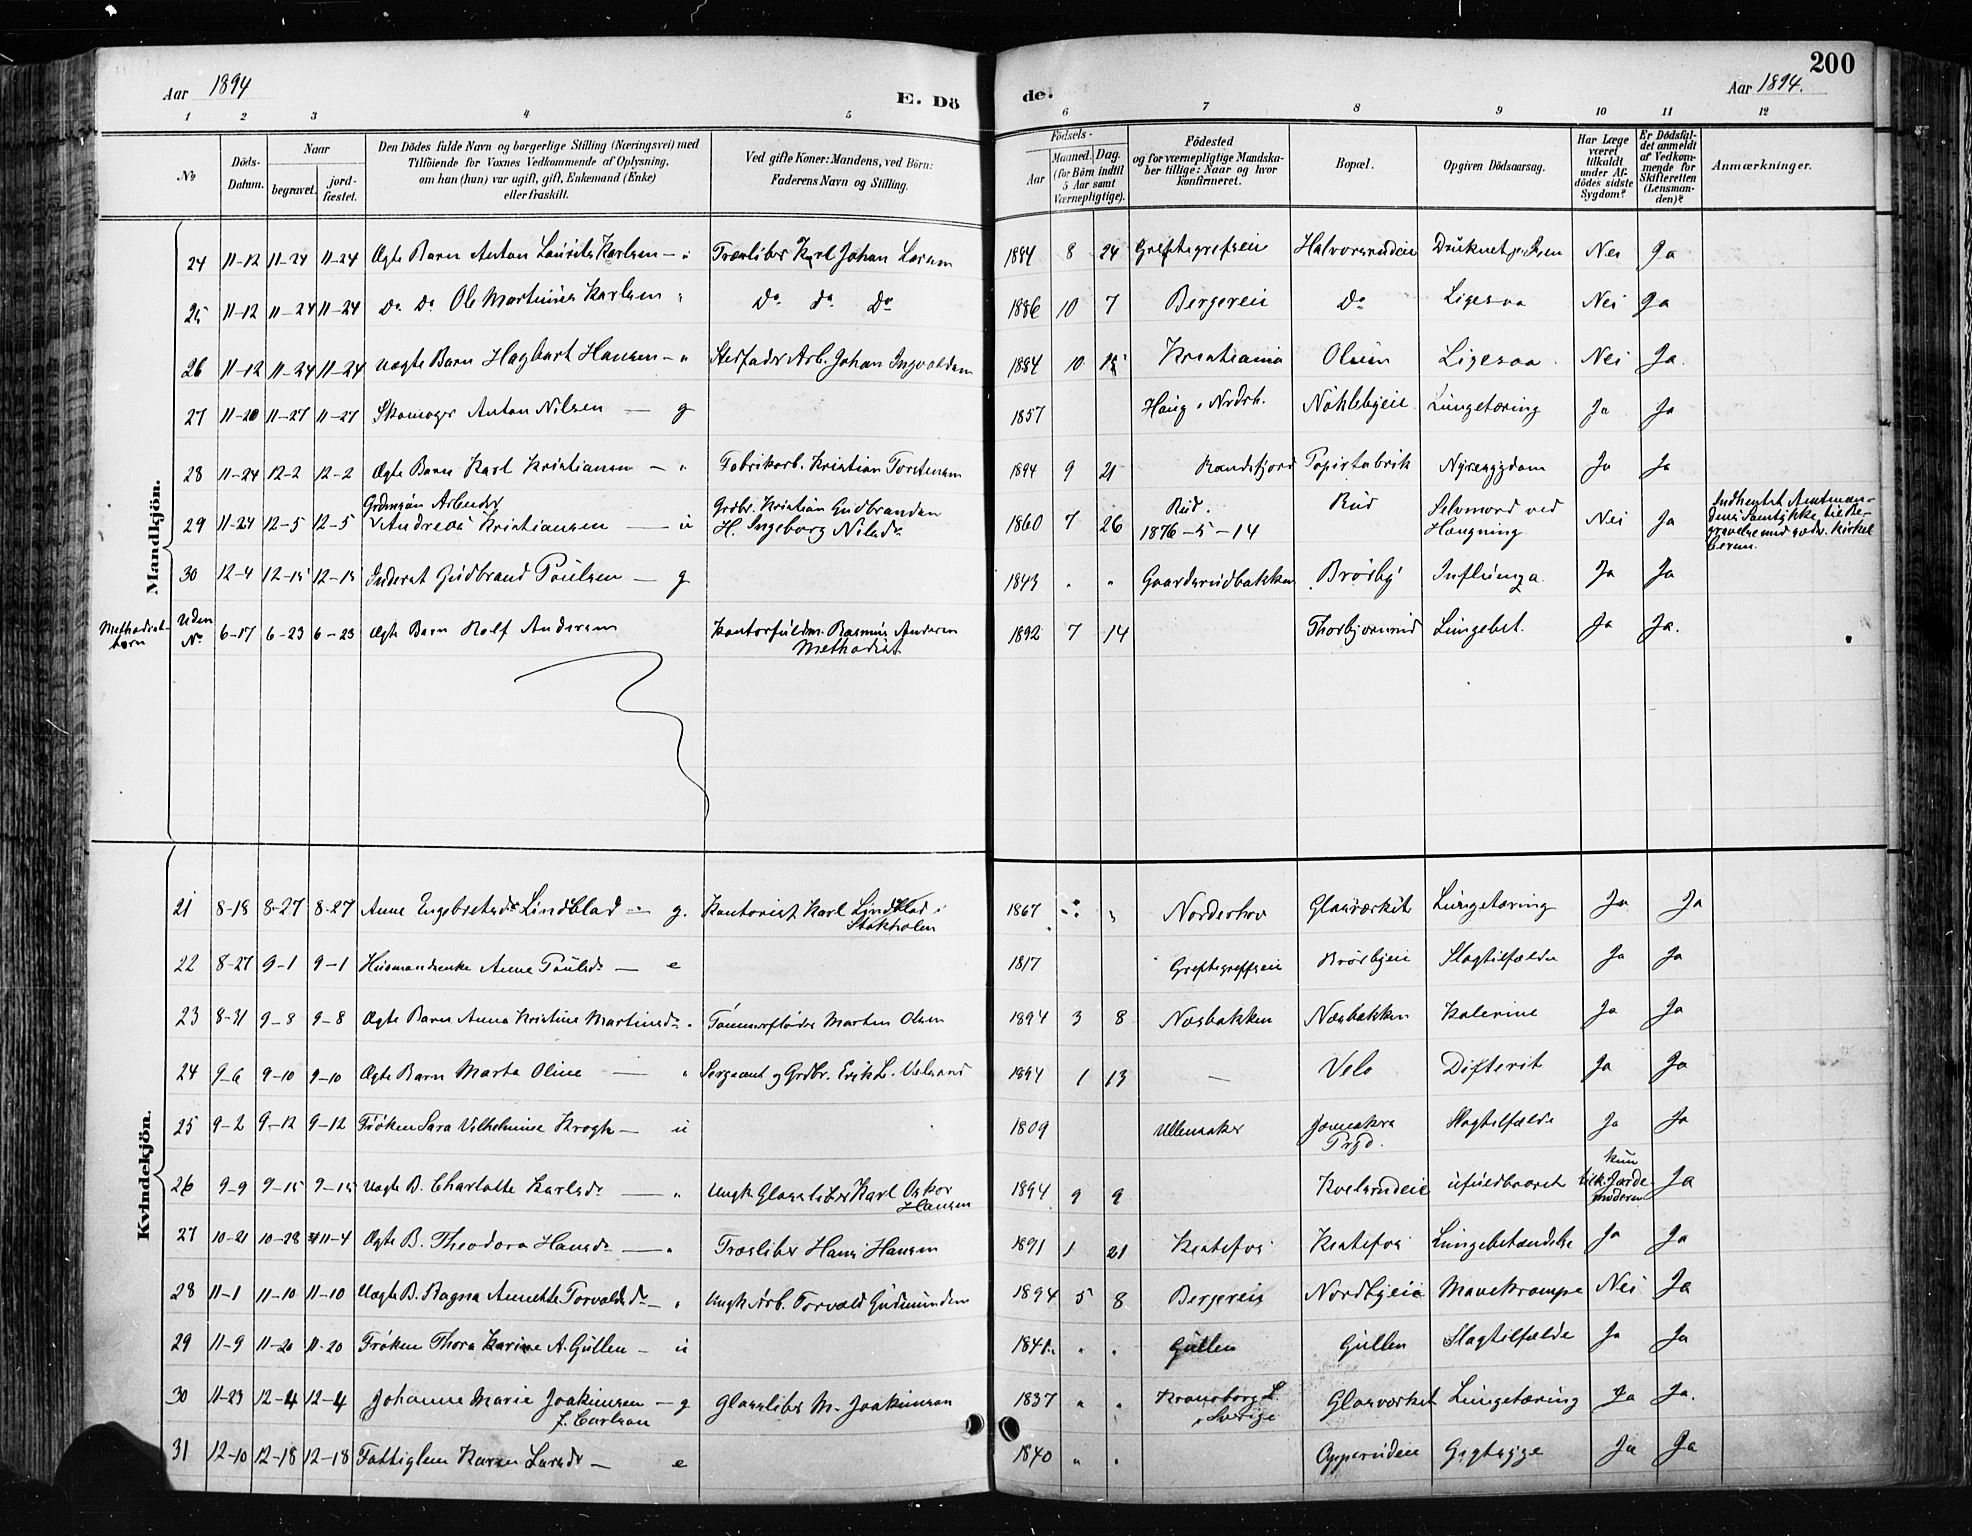 Aar 1894
E. Dö
de.
Aar 1894.
200
1 2 3 4 5 6 7 8 9 10 11 12
No
Döds-Datum.
Naar
begravet.
jord-fæstet.
Den Dödes fulde Navn og borgerlige Stilling (Næringsvei) med
Tilföiende for Voxnes Vedkommende af Oplysning,
om han (hun) var ugift, gift, Enkemand (Enke)
eller fraskilt.
Ved gifte Koner: Mandens, ved Börn:
Faderens Navn og Stilling.
Födsels-
Aar
Maaned. Dag.
(for Börn indtil
5 Aar samt
Værnepligtige).
Födested
og for værnepligtige Mandska-
ber tillige: Naar og hvor
konfirmeret.
Bopæl.
Opgiven Dödsaarsag.
Har Læge
været
tilkaldt
under Af-
dödes sidste
Sygdom?
Er Dödsfal-
det anmeldt
af Vedkom-
mende for
Skifteretten
(Lensman-
den)?
Anmærkninger.
Mandkjön.
24 11-12 11-24 11-24 Ægte Barn Anton Laurits Karlsen Træsliber Karl Johan Larsen 1884 8 24 Greftegrefseie Halvorsrudeie Druknet Nei Ja
25 11-12 11-24 11-24 Do Do Ole Martinius Karlsen Do Do Do 1886 10 7 Bergereie Do Ligesaa Nei Ja
26 11-12 11-24 11-24 Uægte Barn Hagbart Hansen Stedfader Arb. Johan Ingvaldsen 1884 10 15 Kristiania Olum Ligesaa Nei Ja.
27 11-20 11-27 11-27 Skomager Anton Nilsen — g 1857 Haug i Nordrh. Nøhlebyeie Lungetæring Ja Ja
28 11-24 12-2 12-2 Ægte Barn Karl Kristiansen Fabrikarb. Kristian Torstensen 1894 9 21 Randsfjord Papirfabrik Nyresygdom Ja Ja
29 11-24 12-5 12-5 Grdmsøn Arbeider
Andreas Kristiansen — u Grdbr. Kristian Gudbrandsen
H. Ingeborg Nilsdr 1860 7 26 Rud.
1876-5-14 Rud Selvmord ved
Hængning. Nei Ja Indhentet Amtman-
dens Samtykke til Be-
gravelse med sædv. kirkel
Cerem.
30 12-4 12-15 12-15 Inderst Gudbrand Paulsen — g 1843 " " Gaardsrudbakken Brørby Influenza Ja Ja
Methodist-
barn
Uden
No 6-17 6-23 6-23 Ægte Barn Rolf Andersen Kontorfuldm. Rasmus Andersen
Methodist 1892 7 14 Thorbjørnsrud Lungebet. Ja Ja.
Kvindekjön.
21 8-18 8-27 8-27 Anne Engebretsdr Lindblad — g. Kontorist Karl Lindblad i
Stokholm 1867 Norderhov Glasværket Lungetæring Ja Ja
22 8-27 9-1 9-1 Husmandsenke Anne Paulsdr — e 1817 Greftegreffseie Brørbyeie Slagtilfælde Ja Ja
23 8-31 9-8 9-8 Ægte Barn Anna Kristine Martinsdr Tømmerfløder Martin Olsen 1894 3 8 Næsbakken Næsbakken Kolerine Ja Ja
24 9-6 9-10 9-10 Ægte Barn Marta Oline — Sergeant og Grdbr. Erik L. Velsand 1894 1 13 — Velo Difterit Ja Ja
25 9-2 9-12 9-12 Frøken Sara Vilhelmine Krogh — u 1809 Ullensaker Jævnaker
Prgd. Slagtilfælde Ja Ja
26 9-9 9-15 9-15 Uægte B. Charlotte Karlsdr — Ungk. Glassliber Karl Oskar
Hansen 1894 9 9 Kvelsrudeie ufuldbaaret kun
tilk. Jorde-
moderen Ja
27 10-21 10-28 11-4 Ægte B. Theodora Hansdr — Træsliber Hans Hansen 1891 1 21 Kistefos Kistefos Lungebetændelse Ja Ja
28 11-1 11-10 11-10 Uægte B. Ragna Annette Torvaldsdr — Ungk. Arb. Torvald Gudmundsen 1894 5 8 Bergereie Nordbyeie Mavekrampe Nei Ja
29 11-9 11-20 11-20 Frøken Thora Karine A. Gullen — u 1841 " " Gullen Gullen Slagtilfælde Ja Ja
30 11-23 12-4 12-4 Johanne Marie Joakimsen — g
f. Carlson Glassliber M. Joakimson 1837 " " Kronoborg L.
i Sverige Glasværket Lungetæring Ja Ja.
31 12-10 12-18 12-18 Fattiglem Karen Larsdr — e 1840 " " Opperudeie Gigtsyge Ja Ja